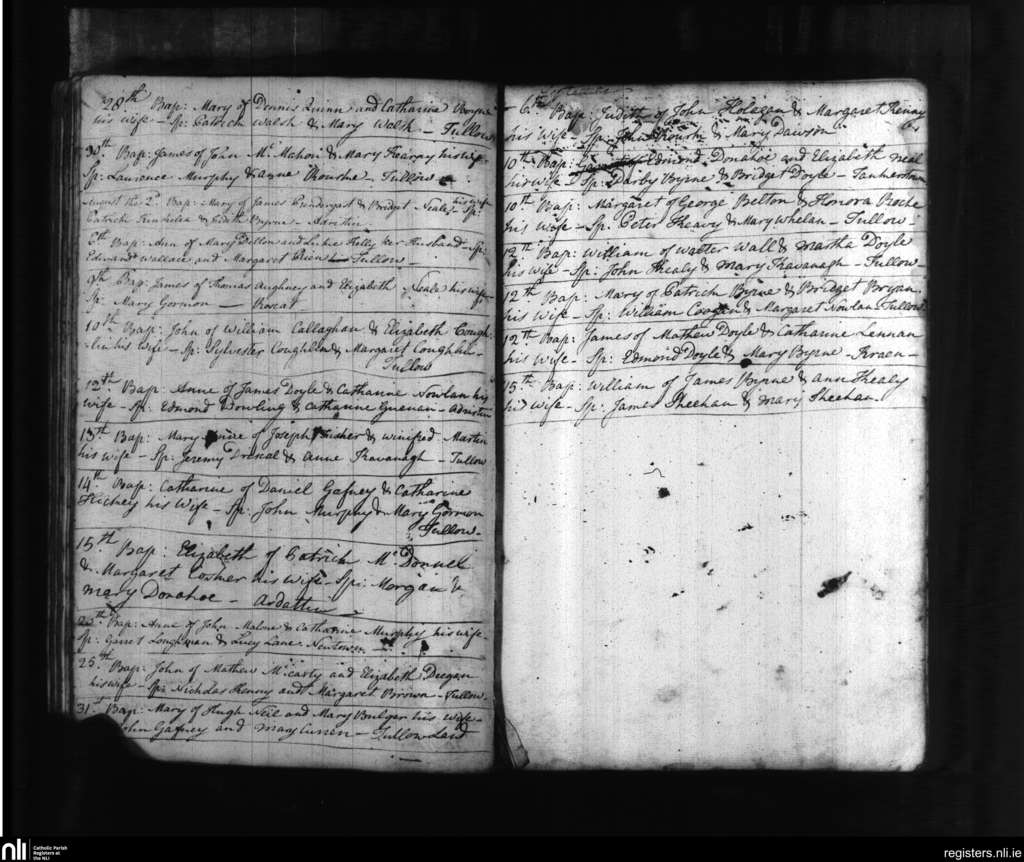 28th Bap: Mary of Dennis Quinn and Catharine Byrne
his wife - Sp: Patrick Walsh & Mary Walsh - Tullow
30th Bap: James of John Mc Mahon & Mary Kearny his wife
Sp: Laurence Murphy & Anne Rourke - Tullow
August the 2d Bap: Mary of James Prendergast & Bridget Neale his wife Sp:
Patrick & Judith Byrne -
6th Bap: Ann of Mary Dillon and Luke Kelly her Husband - Sp:
Edward Wallace and Margaret - Tullow -
Bap: James of Thomas Aughney and Elizabeth Neale his wife
Sp: Mary Gormon - Roscat
10th Bap: John of William Callaghan & Elizabeth Cough-
-lin his wife - Sp: Sylvester Coughlin & Margaret Coughlin -
Tullow
12th Bap: Anne of James Doyle & Catharine Nowlan his
wife - Sp: Edmond Dowling & Catharine -
13th Bap: Mary of Joseph & Winifred Martin
his wife - Sp: Jeremy & Anne Kavanagh - Tullow
14th Bap: Catharine of Daniel Gafney & Catharine
Hickey his Wife - Sp: John Murphy & Mary Gormon
Tullow -
15th Bap: Elizabeth of Patrick McDonnel
& Margaret Cosker his wife - Sp: Morgan &
Mary Donahoe - Ardattin
Bap: Anne of John Malone & Catharine Murphy his wife -
Sp: Garret & Lucy Lane - Newtown
25th Bap: John of Mathew McCarty and Elizabeth Deegan
his wife - Sp: Nicholas Kenny and Margaret Brown - Tullow
31st Bap: Mary of Hugh Neil and Mary Bulger his wife -
John Gafney and Mary Curren - Tullow Land
6th Bap: Judith of John Holegan & Margaret
his Wife - Sp: John Rourke & Mary Dawson
10th Bap: Edmond Donahoe and Elizabeth Neal
his wife Sp: Darby Byrne & Bridget Doyle - Tankerstown
10th Bap: Margaret of George Belton & Honora Roche
his Wife - Sp: Peter Heavy & Mary Whelan - Tullow -
12th Bap: William of Walter Wall & Martha Doyle
his wife - Sp: John Healy & Mary Kavanagh - Tullow -
12th Bap: Mary of Patrick Byrne & Bridget Bryan
his wife - Sp: William Coogan & Margaret Nowlan - Tullow
12th Bap: James of Mathew Doyle & Catharine Lennan
his wife - Sp: Edmond Doyle & Mary Byrne -
15th Bap: William of James Byrne & Ann Healy
his wife - Sp: James Sheehan & Mary Sheehan -
nli
Catholic Parish
Registers at
the NLI
registers.nli.ie